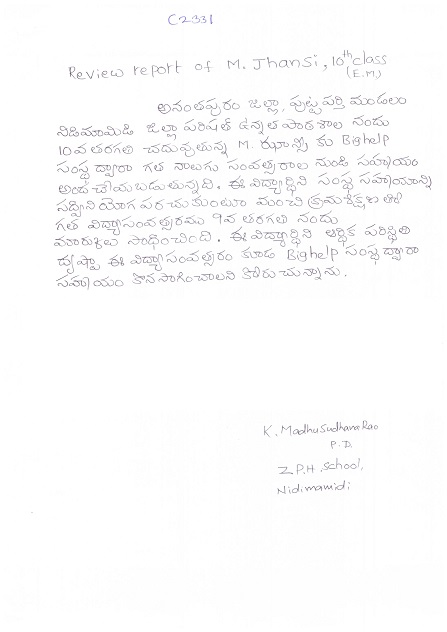 C2331
Review report of M. Jhansi, 10th class
(E.M.)
అనంతపురం జిల్లా, పుట్టపర్తి మండలం
నిడిమామిడి జిల్లా పరిషత్ ఉన్నత పాఠశాల నందు
10వ తరగతి చదువుతున్న M. ఝాన్సీ కు Bighelp
సంస్థ ద్వారా గత నాలుగు సంవత్సరాల నుండి సహాయం
అంద చేయబడుతున్నది. ఈ విద్యార్థిని సంస్థ సహాయాన్ని
సద్వినియోగ పరచుకుంటూ మంచి క్రమశిక్షణ తో
గత విద్యాసంవత్సరము 9వ తరగతి నందు
మార్కులు సాధించింది. ఈ విద్యార్థిని ఆర్థిక పరిస్థితి
దృష్ట్యా ఈ విద్యాసంవత్సరం కూడా Bighelp సంస్థ ద్వారా
సహాయం కొనసాగించాలని కోరుచున్నాను.
K. Madhu Sudhana Rao
P.D.
Z.P.H. School,
Nidimamidi